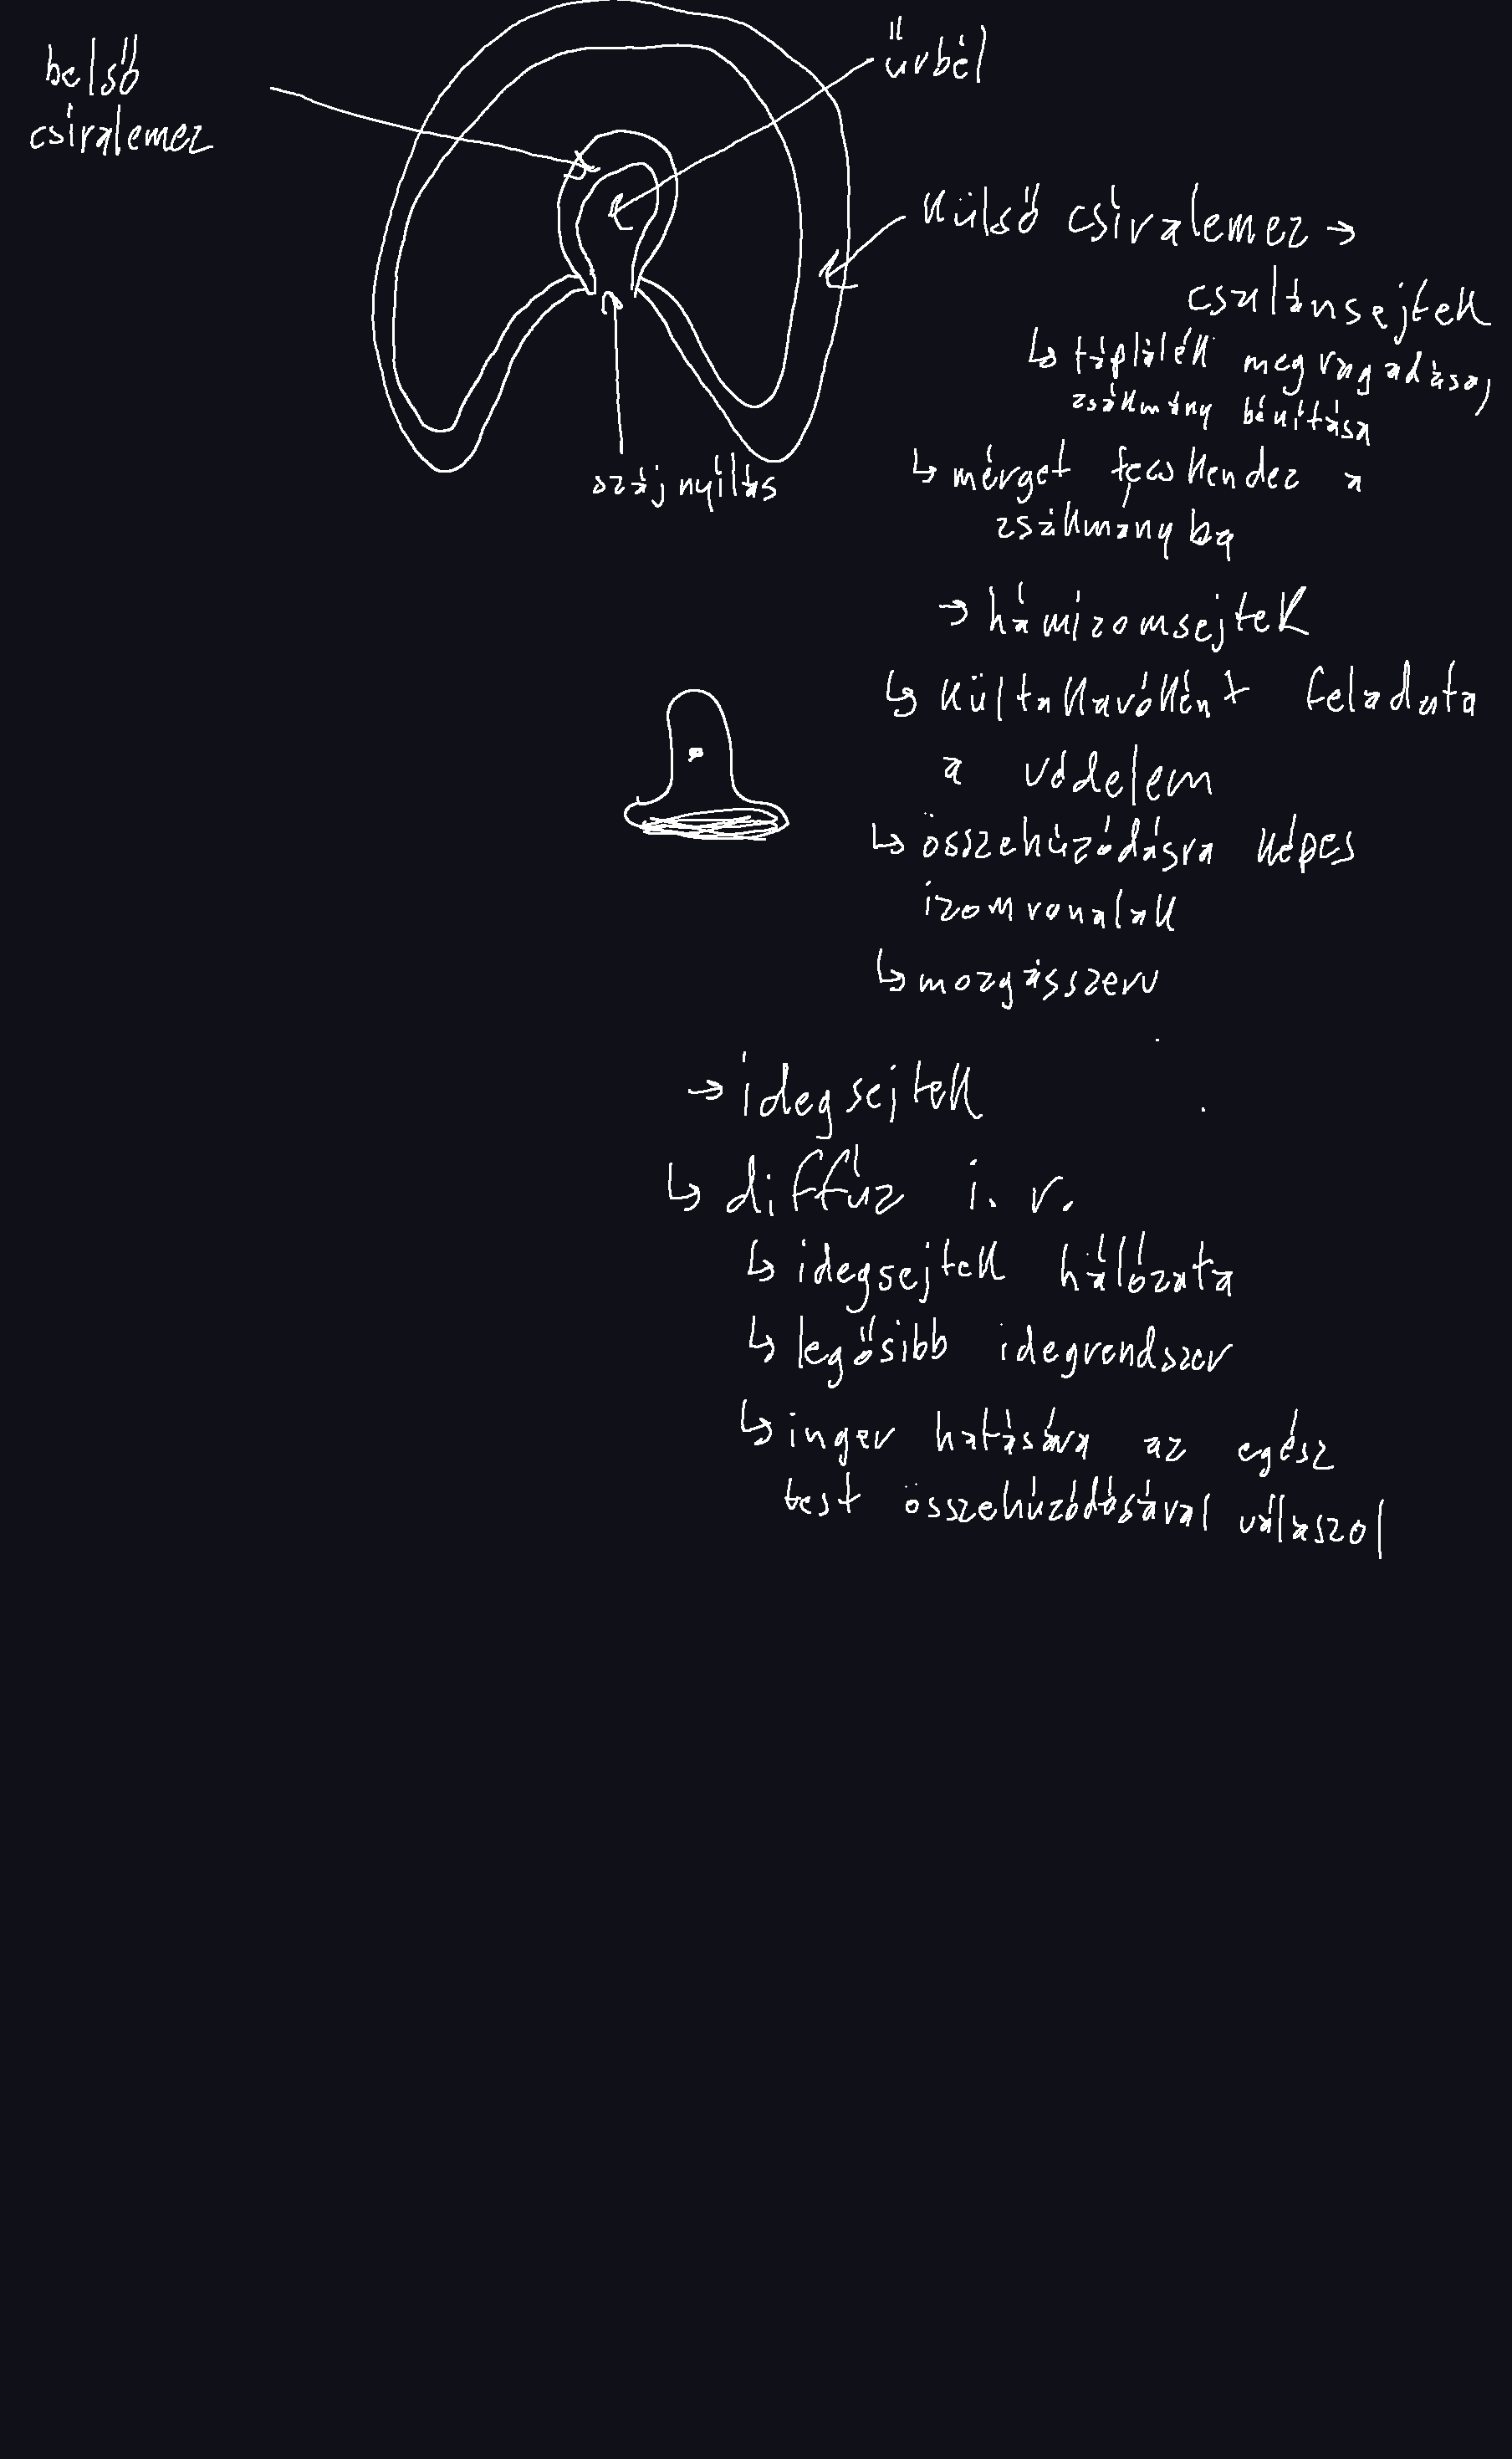 belső
csíralemez
űrbél
külső csíralemez →
csalánsejtek
↳ táplálék megragadása,
zsákmány bénítása
szájnyílás
↳ mérget fecskendez a
zsákmányba
→ hámizomsejtek
↳ kültakaróként feladata
a védelem
↳ összehúzódásra képes
izomronalak
↳ mozgásszerv
→ idegsejtek
↳ diffúz i. r.
↳ idegsejtek hálózata
↳ legősibb idegrendszer
↳ inger hatására az egész
test összehúzódásával válaszol